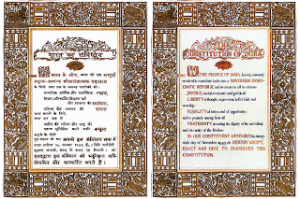 भारत का संविधान
हम भारत के लोग, भारत को एक सम्पूर्ण
प्रभुत्व-सम्पन्न लोकतंत्रात्मक गणराज्य बनाने
के लिए, तथा उस के समस्त नागरिकों को
सामाजिक, आर्थिक और राजनैतिक न्याय,
विचार, अभिव्यक्ति, विश्वास, धर्म
और उपासना की स्वतंत्रता,
प्रतिष्ठा और अवसर की समता
प्राप्त कराने के लिए,
तथा उन सब में
व्यक्ति की गरिमा और राष्ट्र की
एकता सुनिश्चित करने वाली बन्धुता
बढ़ाने के लिए
दृढ़संकल्प होकर अपनी इस संविधान सभा में
एतद्द्वारा इस संविधान को अंगीकृत, अधि-
नियमित और आत्मार्पित करते हैं।
CONSTITUTION OF INDIA
WE, THE PEOPLE OF INDIA, having solemnly
resolved to constitute India into a SOVEREIGN DEMO-
CRATIC REPUBLIC and to secure to all its citizens:
JUSTICE, social, economic and political;
LIBERTY of thought, expression, belief, faith and
worship;
EQUALITY of status and of opportunity;
and to promote among them all
FRATERNITY assuring the dignity of the individual
and the unity of the Nation;
IN OUR CONSTITUENT ASSEMBLY this
twenty-sixth day of November, 1949, do HEREBY ADOPT,
ENACT AND GIVE TO OURSELVES THIS
CONSTITUTION.